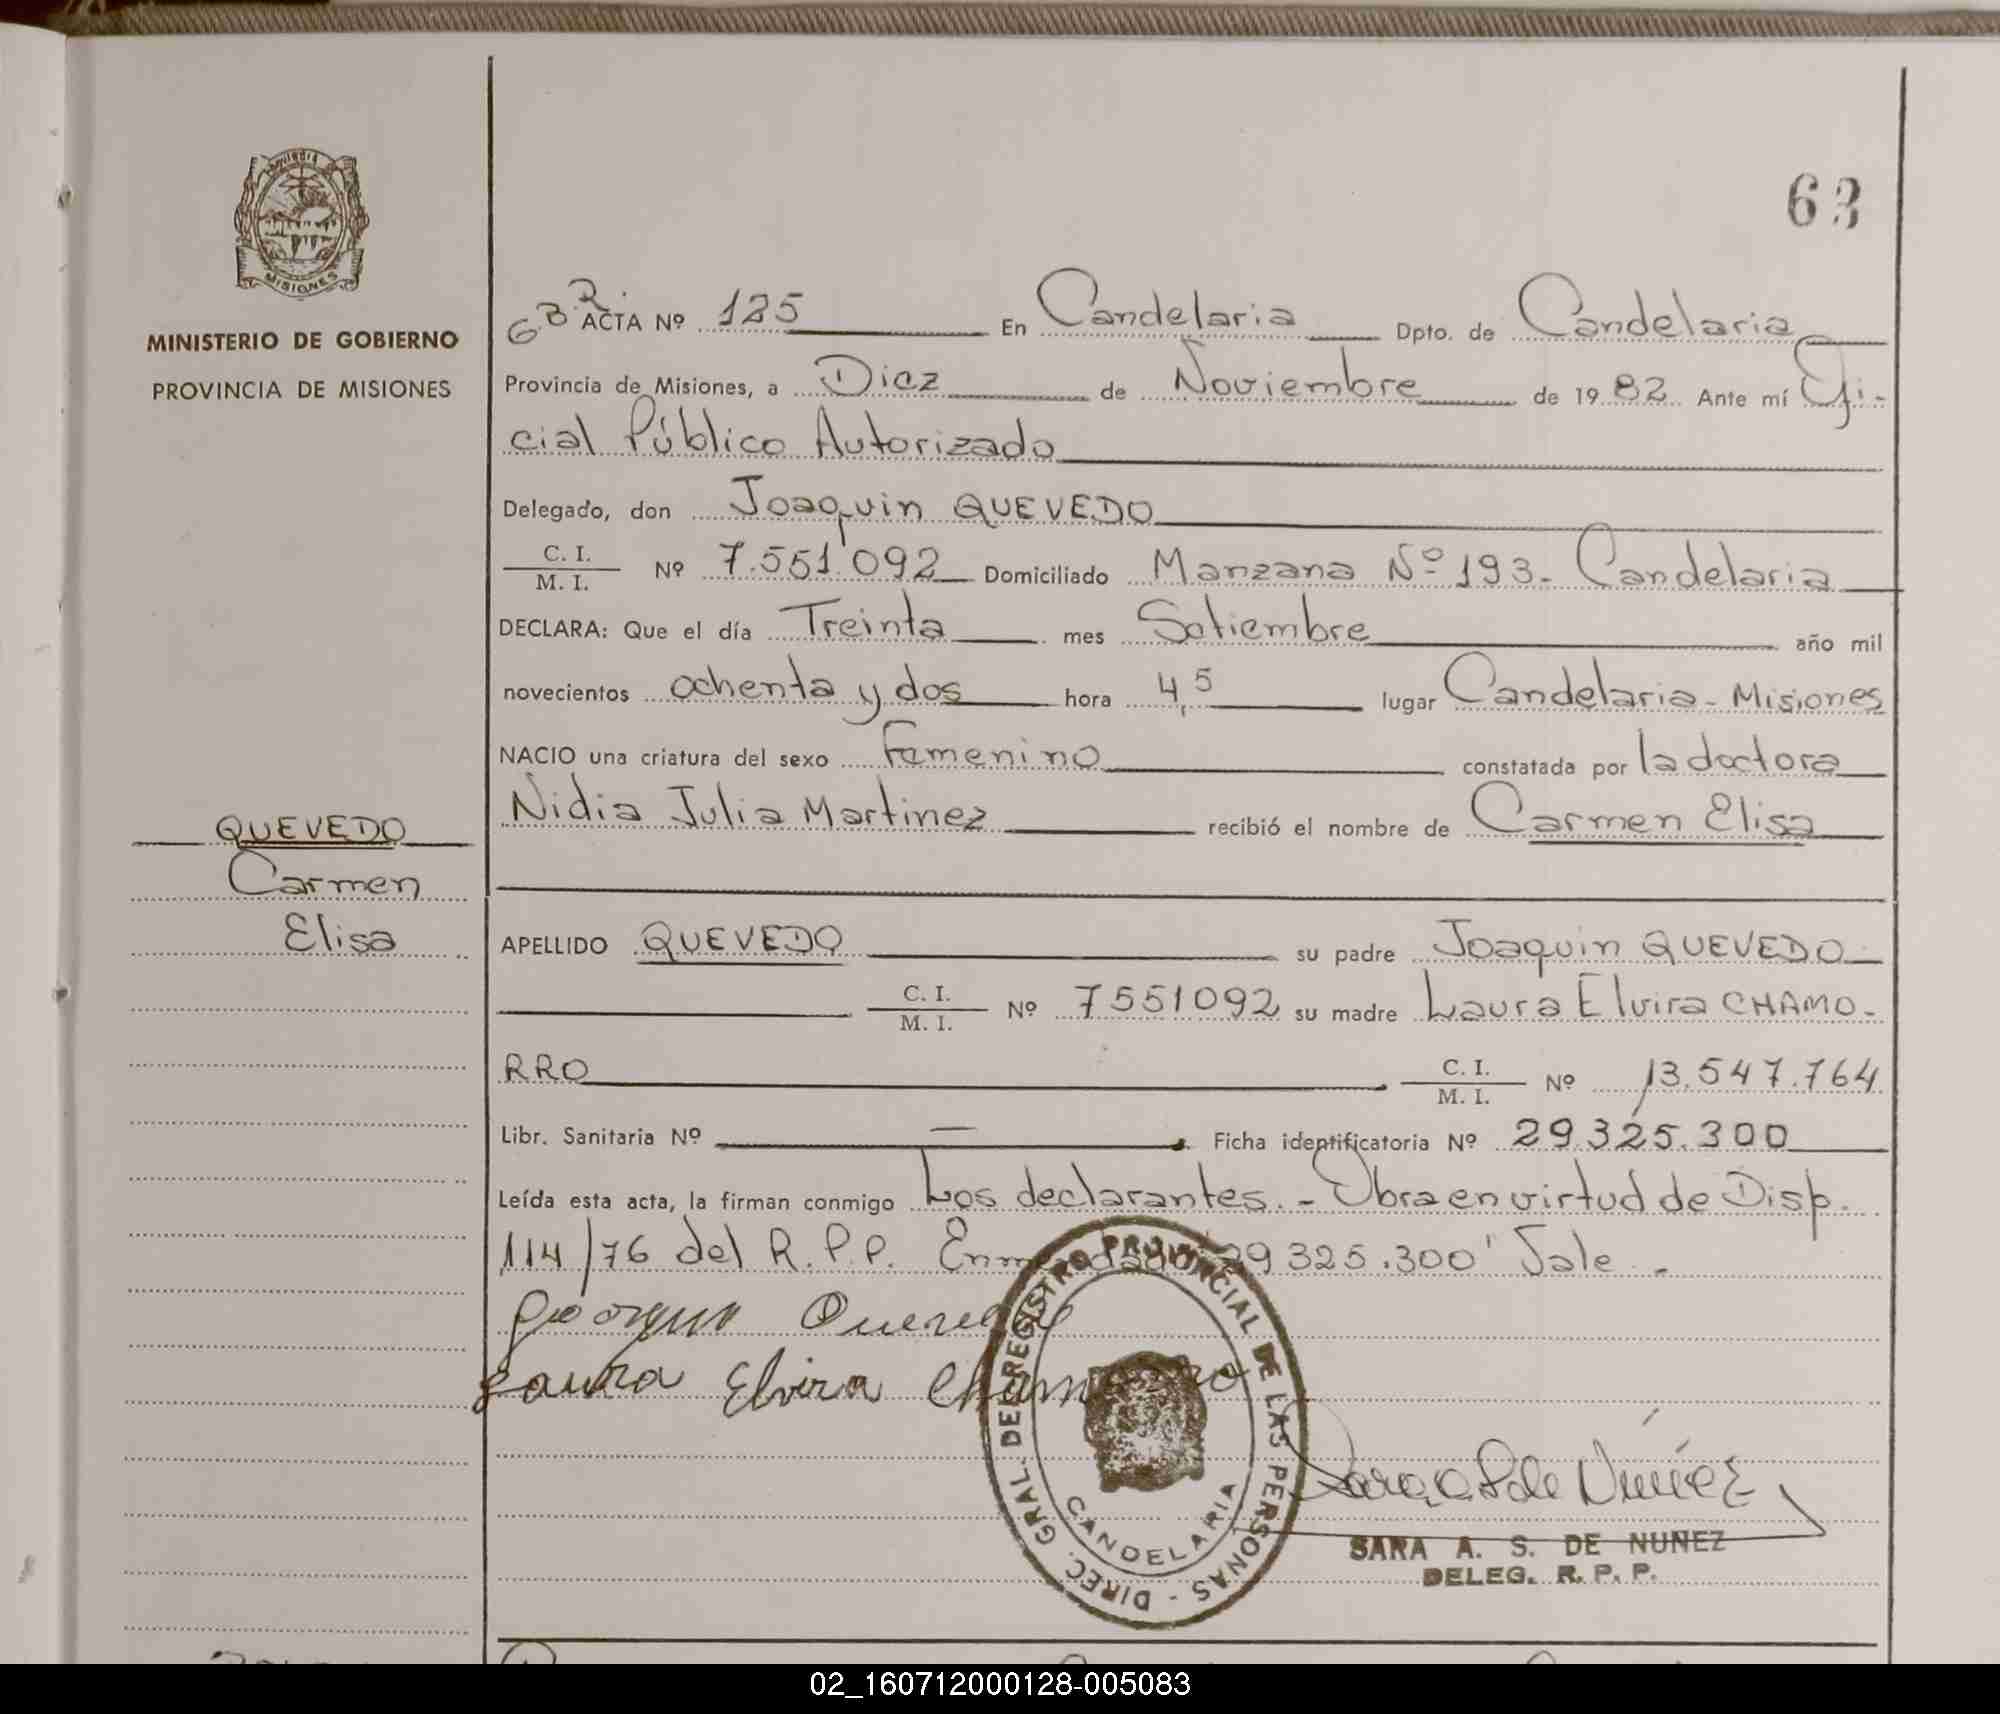 63
MINISTERIO DE GOBIERNO
PROVINCIA DE MISIONES
QUEVEDO
Carmen
Elisa
G.B.R. ACTA Nº 125 En Candelaria Dpto. de Candelaria
Provincia de Misiones, a Diez de Noviembre de 1982 Ante mí Ofi-
cial Público Autorizado
Delegado, don Joaquin QUEVEDO
C. I.
M. I. Nº 7.551.092 Domiciliado Manzana Nº 193. Candelaria
DECLARA: Que el día Treinta mes Setiembre año mil
novecientos ochenta y dos hora 4,5 lugar Candelaria - Misiones
NACIO una criatura del sexo Femenino constatada por la doctora
Nidia Julia Martinez recibió el nombre de Carmen Elisa
APELLIDO QUEVEDO su padre Joaquin QUEVEDO
C. I.
M. I. Nº 7551092 su madre Laura Elvira CHAMO-
RRO C. I.
M. I. Nº 13.547.764
Libr. Sanitaria Nº — Ficha identificatoria Nº 29.325.300
Leída esta acta, la firman conmigo Los declarantes. - Obra en virtud de Disp.
114/76 del R. P. P. Enmendado "29.325.300" Vale.-
Joaquin Quevedo
Laura Elvira Chamorro
DIREC. GRAL. DEL REGISTRO PROVINCIAL DE LAS PERSONAS -
CANDELARIA
Sara A S de Núñez
SARA A. S. DE NUÑEZ
DELEG. R. P. P.
02_160712000128-005083